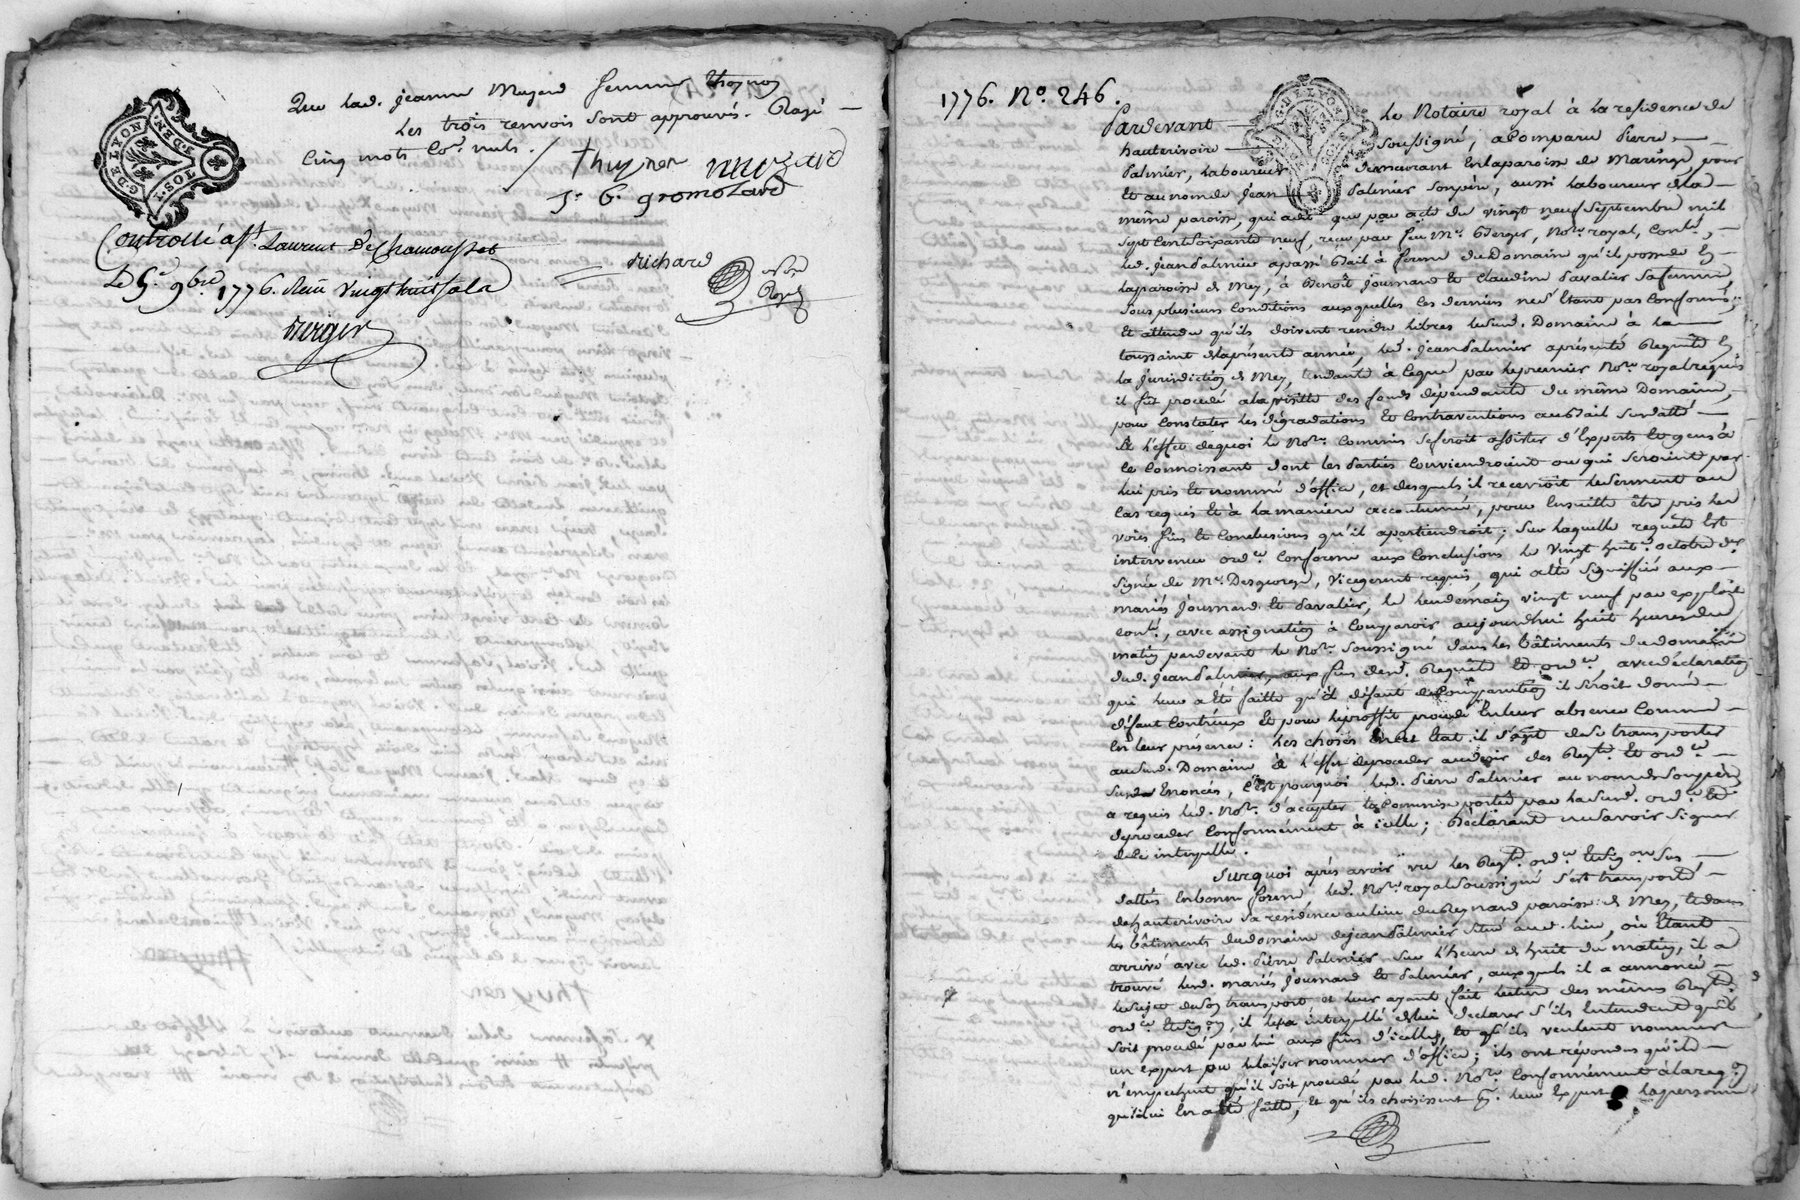 que lad. jeanne Mugard femme thoynon
les trois renvois sont approuvés. Rayé
cinq mots co.e nuls. /
thuynon
J. B. gromolard
G. DE LYON
.2 S. DEN.
Controllé à St. Laurent de Chamousset
Le 5.e 9bre 1776. Reçu vingt huit sols
richard
Berger
1776. No. 246.
G. DE LYON
Pardevant le Notaire royal à la residence de
hauterivoire soussigné, a Comparu Pierre
Palmier, laboureur demeurant en la paroisse de Maringe, pour
et au nom de jean Palmier son père, aussi laboureur de la
même paroisse, qui a dit que par acte du vingt neuf septembre mil
sept cent soixante neuf, reçu par feu Me. Berger, Nore. royal, Conlé,
led. jean Palmier a passé Bail à ferme du Domaine qu'il possede en
la paroisse de Mey, à Benoît journard et Claudine Pavalier sa femme
sous plusieurs conditions auxquelles ces derniers ne s'étant pas conformés,
et attendu qu'ils doivent rendre libres le susd. Domaine à la
toussaint de la présente année, led. jean Palmier a présenté Requête en
la jurisdiction de Mey, tendante à ce que par le premier Nore. royal requis
il fût procedé à la visitte des fonds dépendants du même Domaine,
pour constater les dégradations et contraventions au Bail susdatté
à l'effet de quoi le Nore. commis se feroit assister d'Experts et gens à
ce connoissant dont les Parties conviendroient ou qui seroient par
lui pris et nommé d'office, et desquels il recevroit le serment au
cas requis et à la maniere accoutumée, pour ensuitte être pris les
voies fins et conclusions qu'il apartiendroit; sur laquelle requête est
intervenue ordce. conforme aux conclusions le vingt huit. octobre der.
signée de Me. Desgeorge, vicegerent requis, qui a été signiffiée aux
mariés journard et Pavalier, le lendemain vingt neuf par exploit
conlé, avec assignation à comparoir aujourdhui huit heures du
matin pardevant le Nore. soussigné dans les bâtiments du domaine
dud. jean Palmier, aux fins desd. Requête et ordce. avec déclaration
qui leur a été faitte qu'à défaut de comparution il seroit donné
défaut contr'eux et pour le proffit procedé en leur absence comme
en leur présence: les choses en cet état il s'agit de se transporter
au susd. Domaine à l'effet de proceder au desir des Reqte. et ordce.
susd. énoncés, c'est pourquoi led. Pierre Palmier au nom de son père
a requis led. Nore. d'accepter la commission portée par la susd. ordce. et
de proceder conformément à icelle; déclarant ne savoir signer
de ce interpellé.
Surquoi après avoir vu les Reqte. ordce. et sig.on sus
dattés en bonne forme led. Nore. royal soussigné s'est transporté
de hauterivoire sa residence au lieu du Reynard paroisse de Mey, et dans
les bâtiments du domaine de jean Palmier situé aud. lieu, où étant
arrivé avec led. Pierre Palmier sur l'heure de huit du matin, il a
trouvé lesd. mariés journard et Palmier, auxquels il a annoncé
le sujet de son transport et leur ayant fait lecture des mêmes Reqte.
ordce. et sig.on, il les a interpellé de lui declarer s'ils entendent qu'il
soit procedé par lui aux fins d'icelles, et s'ils veulent nommer
un expert ou le laisser nommer d'office; ils ont répondus qu'ils
n'empechent qu'il soit procedé par led. Nore. conformément à la req.on
qui lui en a été faitte, et qu'ils choisissent pr. leur Expert la personne